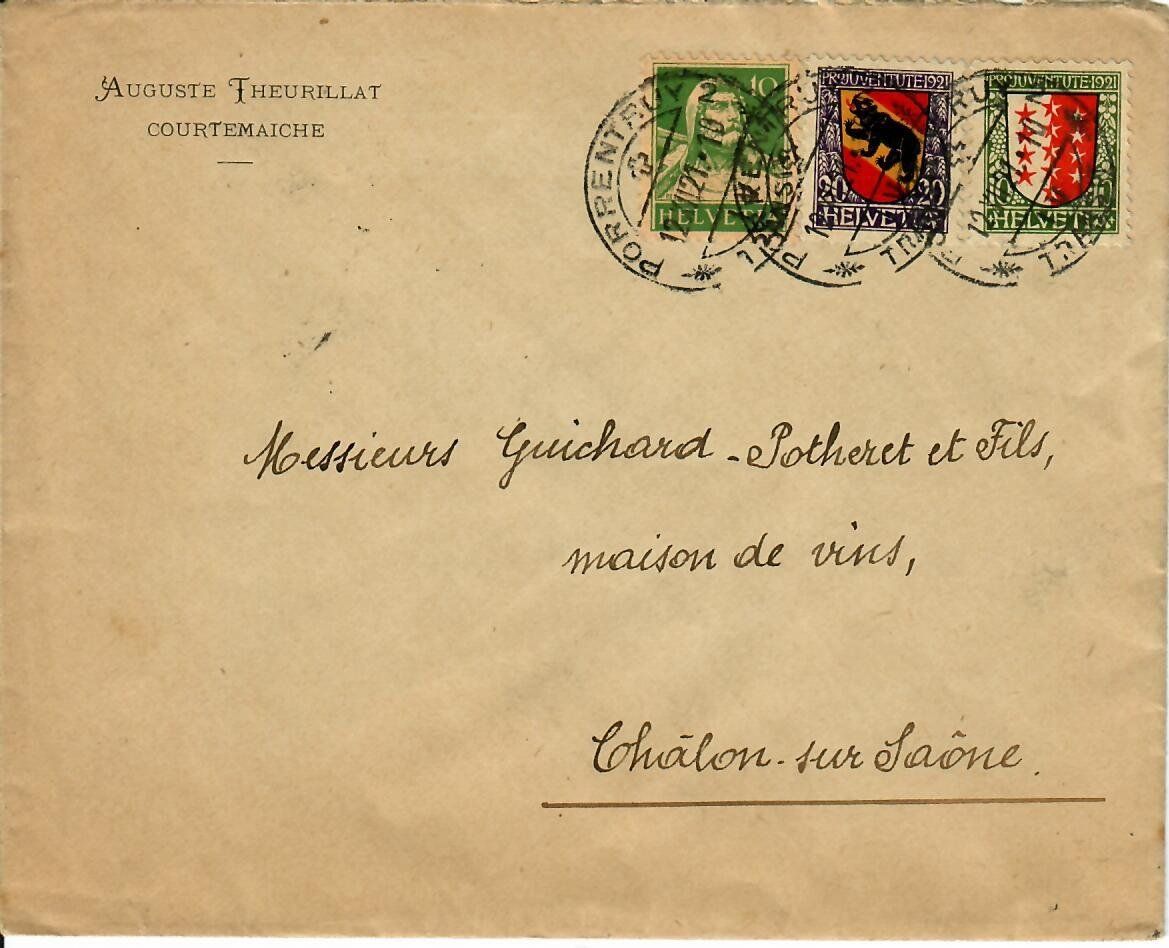 AUGUSTE THEURILLAT
COURTEMAICHE
10
HELVETIA
PRO JUVENTUTE 1921
20 20
HELVETIA
PRO JUVENTUTE 1921
10
HELVETIA
PORRENTRUY 2
Messieurs Guichard-Potheret et Fils,
maison de vins,
Châlon-sur Saône.